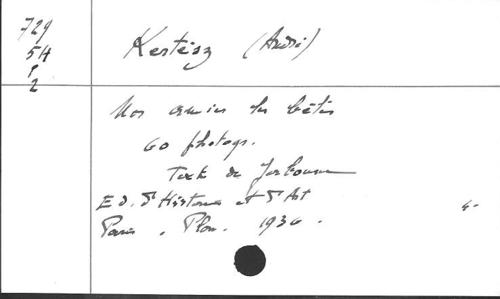 729
54
P
2
Kertész (André)
Nos amies les bêtes
60 photogr.
Texte de Jaboune
Ed. d'Histoire et d'Art
Paris, Plon. 1936.